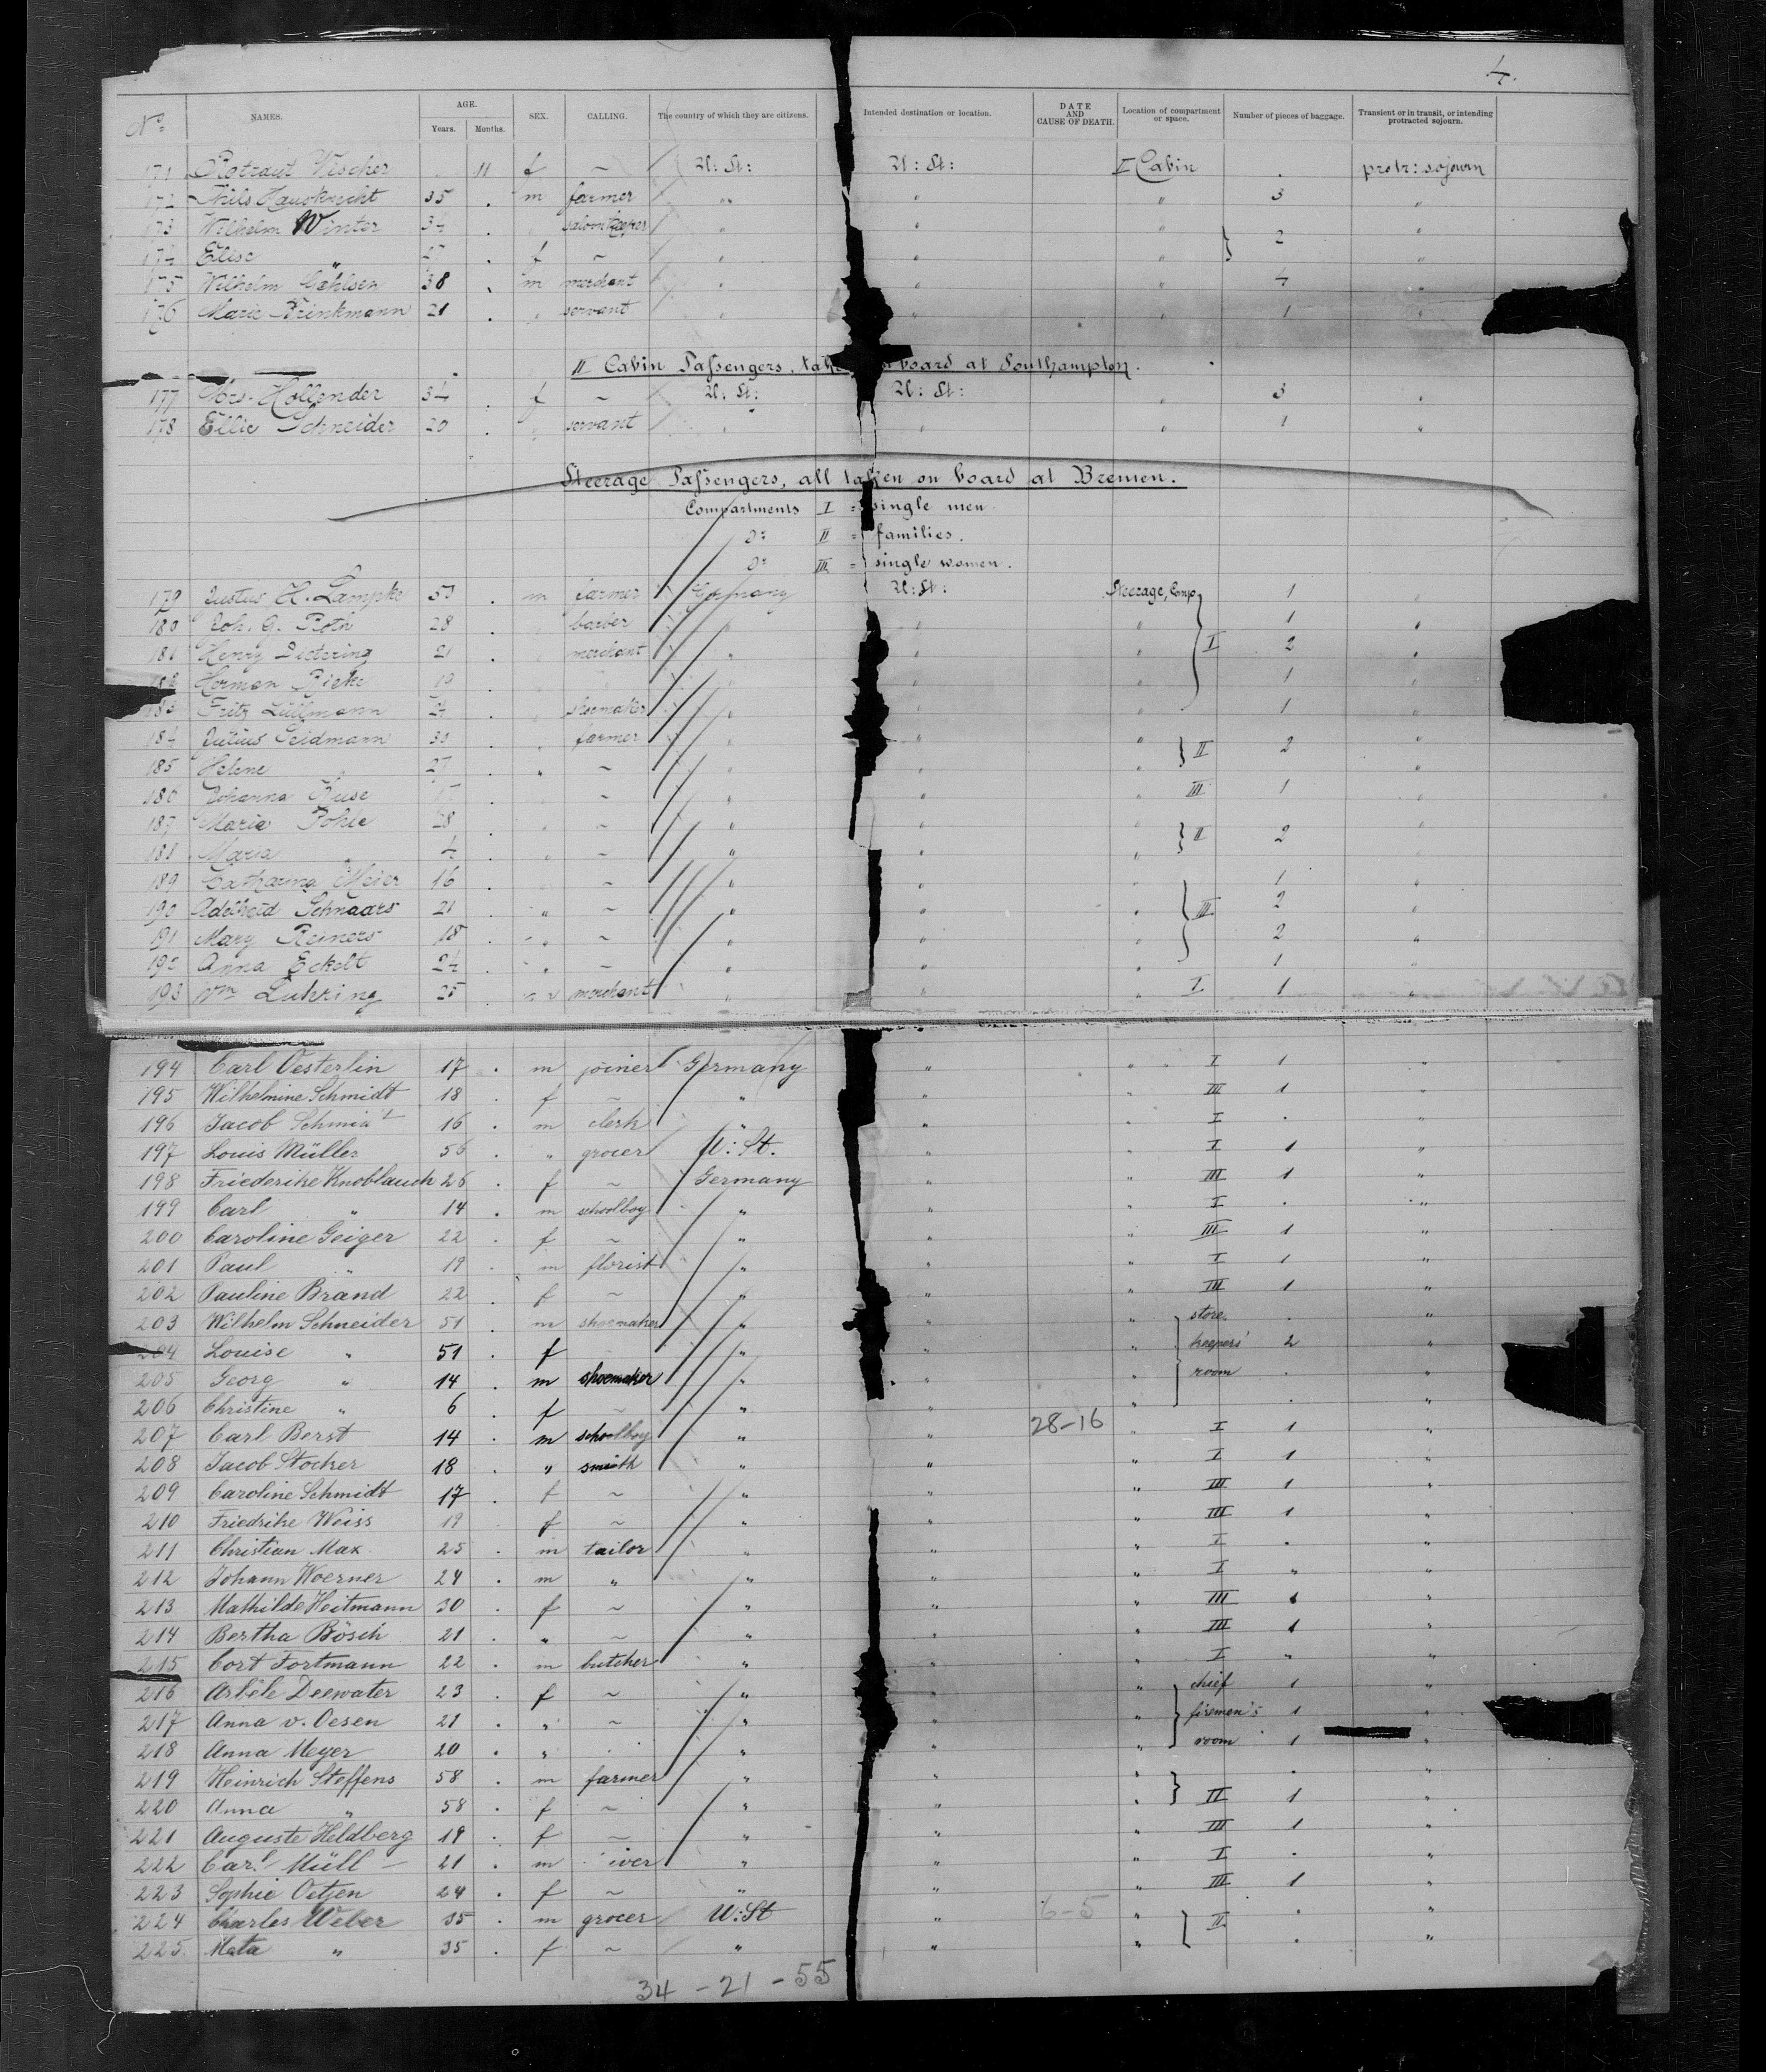 4.
No. NAMES. AGE. Years. Months. SEX. CALLING. The country of which they are citizens. Intended destination or location. DATE AND CAUSE OF DEATH. Location of compartment or space. Number of pieces of baggage. Transient or in transit, or intending protracted sojourn.
171 Rotraut Vischer . 11 f ~ U: St: U: St: II Cabin . protr: sojourn
172 Nils Hausknecht 35 . m farmer " " " 3 "
173 Wilhelm Winter 34 . " saloonkeeper " " " 2 "
174 Elise " 27 . f ~ " " " "
175 Wilhelm Gahlsen 38 . m merchant " " " 4 "
176 Marie Brinkmann 21 . " servant " " " 1 "
II Cabin Passengers, taken on board at Southampton.
177 Mrs. Hollender 34 . f ~ U: St: U: St: " 3 "
178 Ellie Schneider 20 . " servant " " " 1 "
Steerage Passengers, all taken on board at Bremen.
Compartments I = single men
Do II = families.
Do III = single women.
179 Justus H. Lampke 53 . m farmer Germany U: St: Steerage, Comp 1 "
180 Joh. G. Roth 28 " barber " " " 1 "
181 Henry Dietering 21 . " merchant " " " I 2 "
182 Herman Rieke 19 . " " " " 1 "
183 Fritz Lüllmann 24 . " shoemaker " " 1 "
184 Julius Seidmann 30 . " farmer " " " II 2 "
185 Helene " 27 . " ~ " " " "
186 Johanna Kuse 17 " ~ " " " III 1 "
187 Maria Pohle 28 . " ~ " " " II 2 "
188 Maria 4 . " ~ " " "
189 Catharina Meier 16 . ~ " " " 1 "
190 Adelheid Schnaars 21 . " ~ " " " III 2 "
191 Mary Reiners 18 . " ~ " " " 2 "
192 Anna Eckelt 24 . " ~ " " " 1 "
193 Wm Luhring 25 . merchant " " " I 1 "
194 Carl Oesterlin 17 . m joiner Germany " " I 1 "
195 Wilhelmine Schmidt 18 . f ~ " " " III 1 "
196 Jacob Schmidt 16 . m clerk " " " I . "
197 Louis Müller 56 . " grocer U: St. " " I 1 "
198 Friederike Knoblauch 26 . f ~ Germany " " III 1 "
199 Carl " 14 . m schoolboy " " " I . "
200 Caroline Geiger 22 . f ~ " " " III 1 "
201 Paul " 19 . m florist " " " I 1 "
202 Pauline Brand 22 . f ~ " " " III 1 "
203 Wilhelm Schneider 51 . m shoemaker " " " store . "
204 Louise " 51 . f " " " keepers' 2 "
205 Georg " 14 . m shoemaker " " " room . "
206 Christine " 6 . f ~ " " " . "
207 Carl Berst 14 . m schoolboy " " 28-16 " I 1 "
208 Jacob Stocker 18 . " smith " " " I 1 "
209 Caroline Schmidt 17 . f ~ " " " III 1 "
210 Friedrike Weiss 19 . f ~ " " " III 1 "
211 Christian Max 25 . m tailor " " " I " "
212 Johann Woerner 24 . m " " " " I " "
213 Mathilde Heitmann 30 . f ~ " " " III 1 "
214 Bertha Bösch 21 . " ~ " " " III 1 "
215 Cort Fortmann 22 . m butcher " " " I " "
216 Arbele Deewater 23 . f ~ " " " chief 1 "
217 Anna v. Oesen 21 . " ~ " " " firemen's 1 "
218 Anna Meyer 20 . " . " " " room 1 "
219 Heinrich Steffens 58 . m farmer " " " . "
220 Anna " 58 . f ~ " " " II 1 "
221 Auguste Heldberg 19 . f ~ " " " III 1 "
222 Carl Müll 21 . m iver " " " I . "
223 Sophie Oetjen 24 . f ~ " " " III 1 "
224 Charles Weber 35 . m grocer U: St " 6-5 " II . "
225. Meta " 35 . f ~ " " " . "
34 - 21 - 55